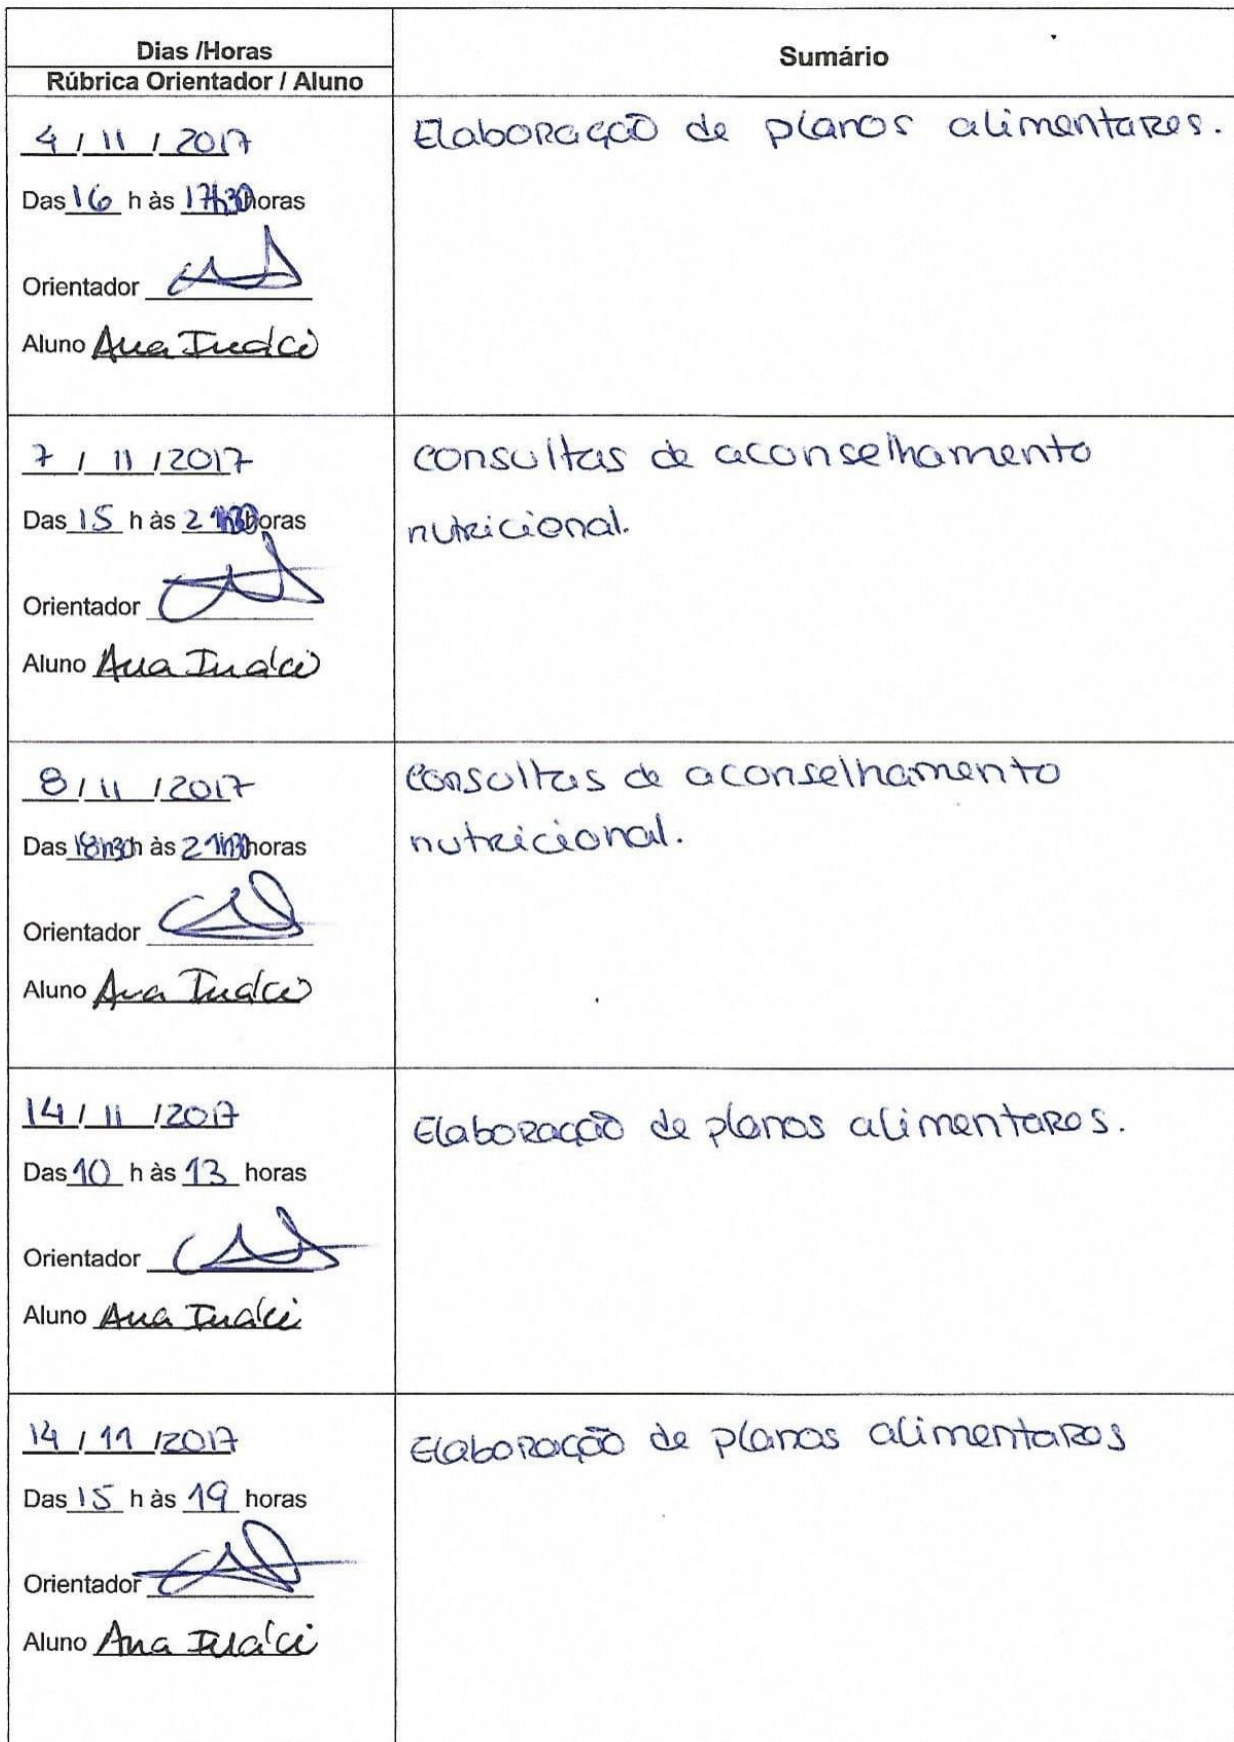 Dias /Horas
Rúbrica Orientador / Aluno
Sumário
4 / 11 / 2017
Das 16 h às 17h30 horas
Orientador
Aluno Ana Inácio
Elaboração de planos alimentares.
7 / 11 / 2017
Das 15 h às 21h30 horas
Orientador
Aluno Ana Inácio
consultas de aconselhamento
nutricional.
8 / 11 / 2017
Das 18h30 h às 21h30 horas
Orientador
Aluno Ana Inácio
consultas de aconselhamento
nutricional.
14 / 11 / 2017
Das 10 h às 13 horas
Orientador
Aluno Ana Inácio
Elaboração de planos alimentares.
14 / 11 / 2017
Das 15 h às 19 horas
Orientador
Aluno Ana Inácio
Elaboração de planos alimentares